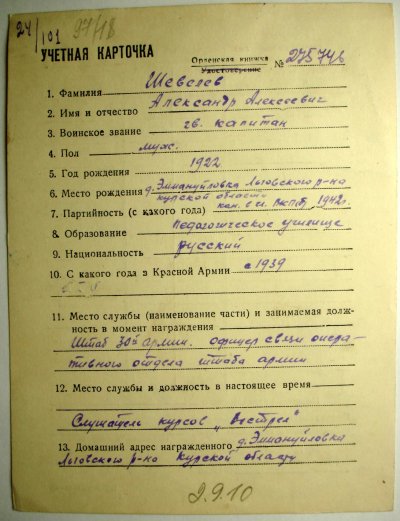 24/101 97/18
УЧЕТНАЯ КАРТОЧКА
Орденская книжка
Удостоверение
№ 275746
1. Фамилия Шевелев
2. Имя и отчество Александр Алексеевич
3. Воинское звание гв. капитан
4. Пол муж.
5. Год рождения 1922
6. Место рождения д. Эммануйловка Льговского р-на
Курской области
7. Партийность (с какого года) кан. с 1942г.
8. Образование Педагогическое училище
9. Национальность русский
10. С какого года в Красной Армии с 1939
11. Место службы (наименование части) и занимаемая долж-
ность в момент награждения
Штаб 30й армии. офицер связи опера-
тивного отдела штаба армии
12. Место службы и должность в настоящее время
Слушатель курсов „Выстрел"
13. Домашний адрес награжденного д. Эммануйловка
Льговского р-на Курской области
2.9.10